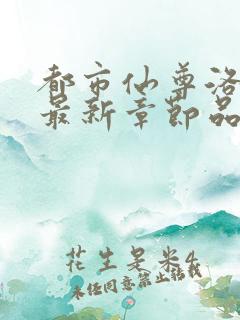 都市仙尊洛
最新章节品
花生是米4
未经同意禁止转载